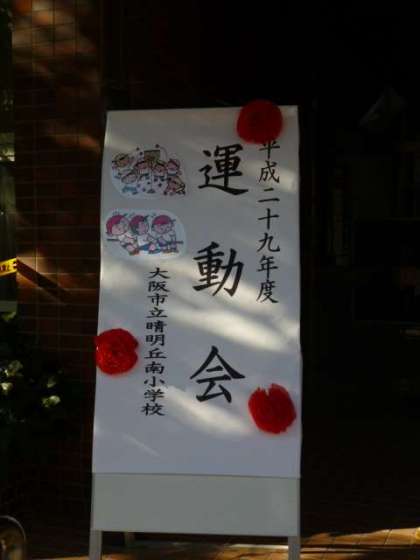 平成二十九年度
運動会
大阪市立晴明丘南小学校